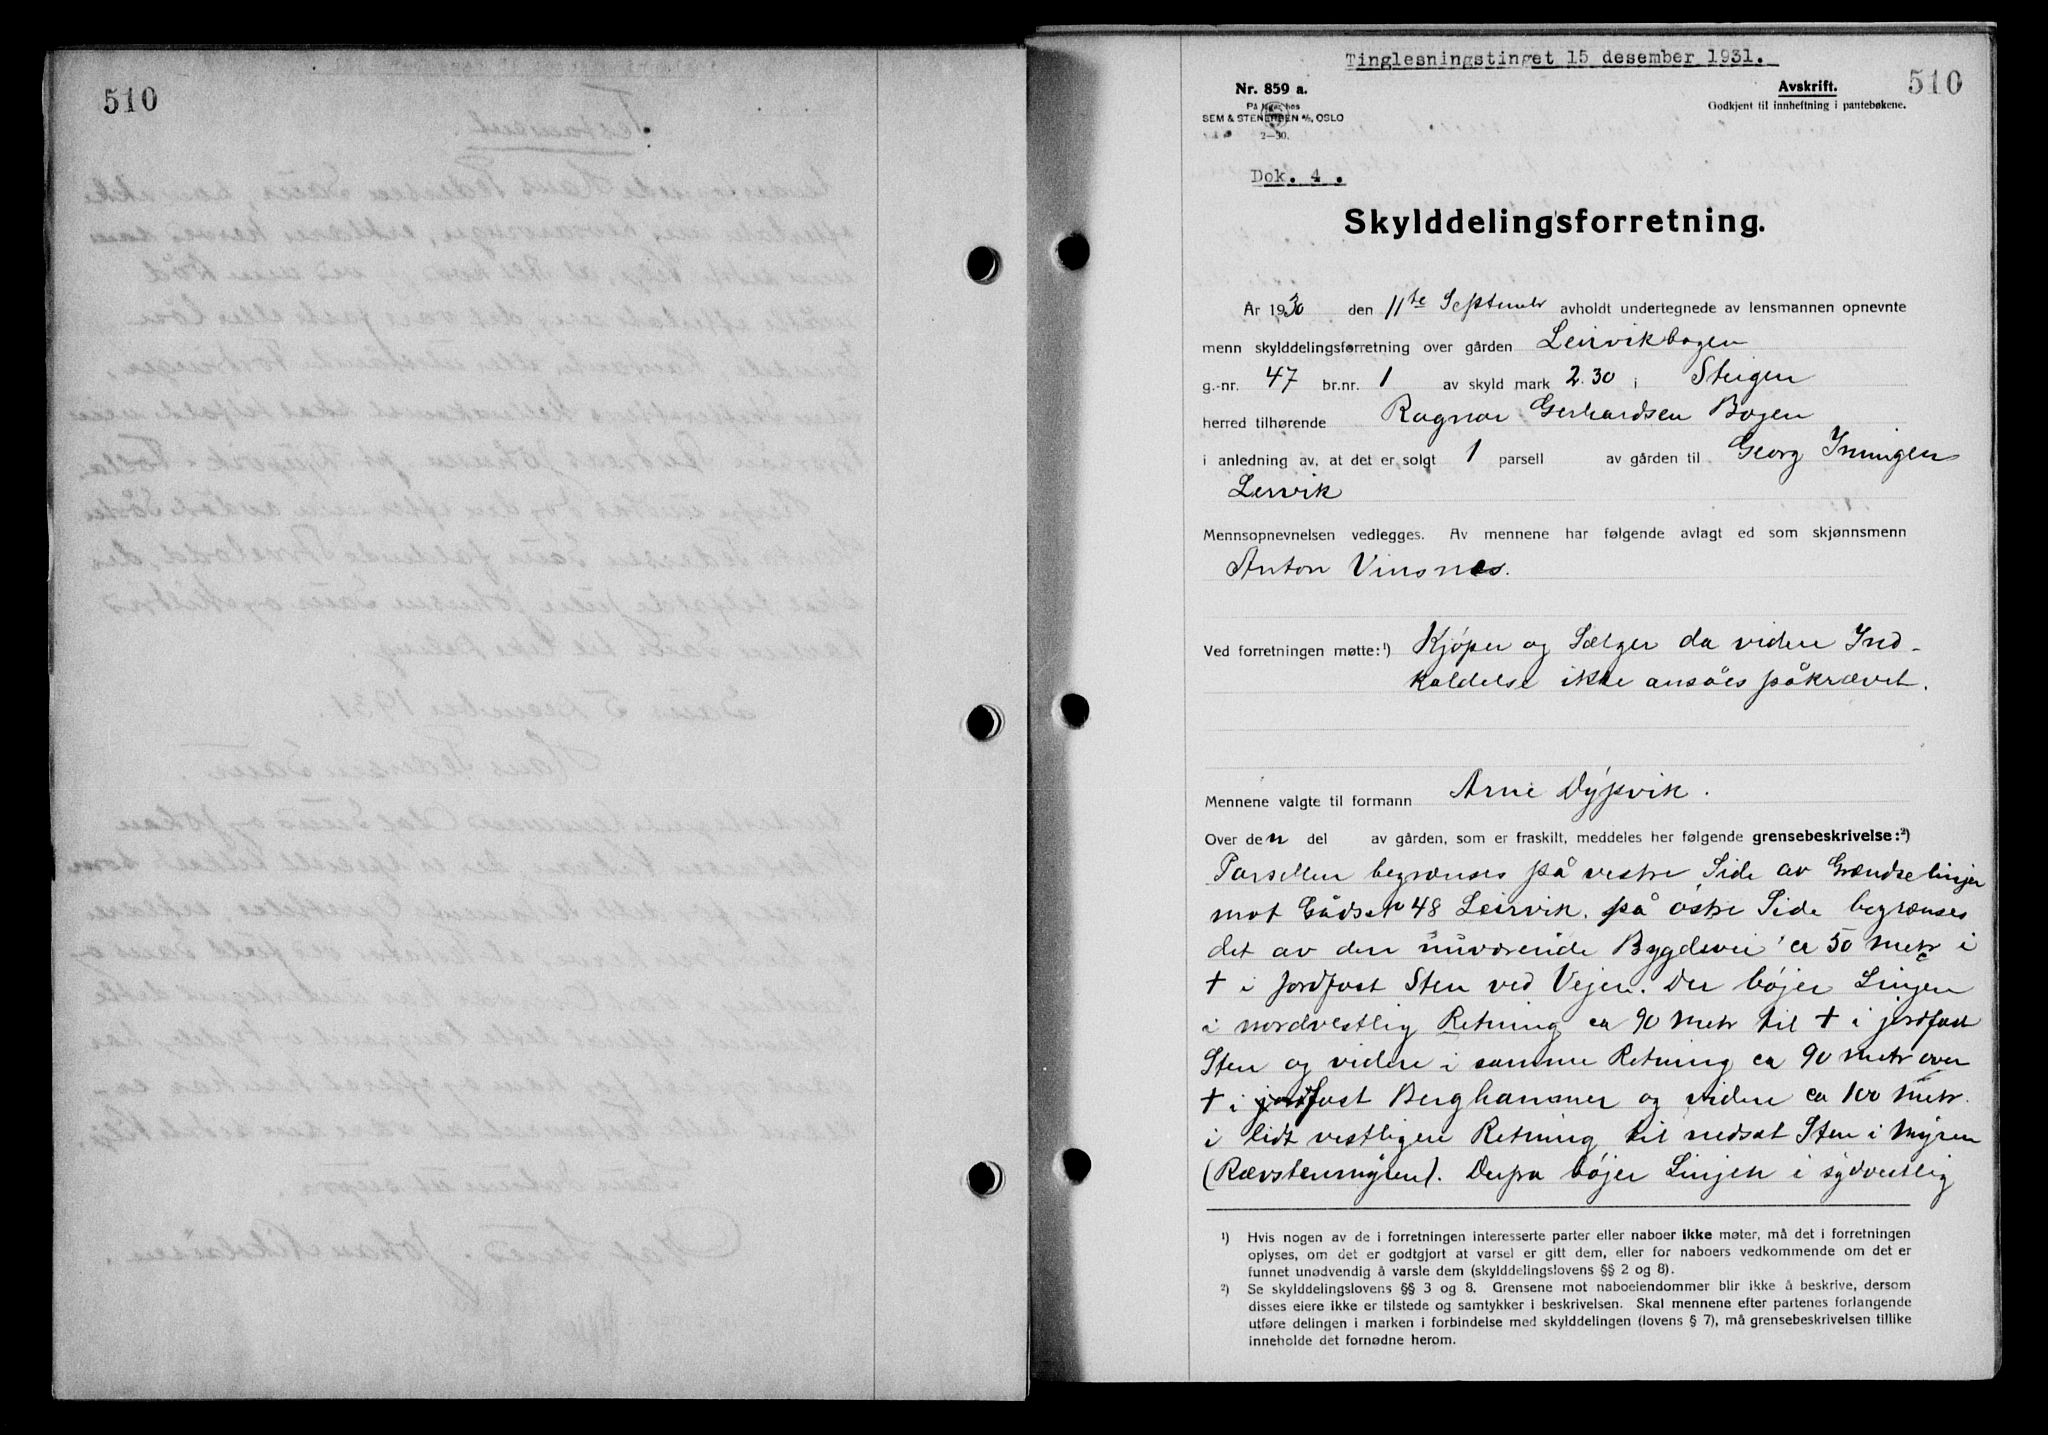 510
Tinglesningstinget 15 desember 1931.
510
Nr. 859 a.
Avskrift.
På lager hos
Godkjent til innheftning i pantebøkene.
SEM & STENERSEN A/S, OSLO
2—30.
Dok. 4.
Skylddelingsforretning.
År 1930 den 11te September avholdt undertegnede av lensmannen opnevnte
menn skylddelingsforretning over gården Leirvikbogen
g.-nr. 47 br.nr. 1 av skyld mark 2.30 i Steigen
herred tilhørende Ragnar Gerhardsen Bogen
i anledning av, at det er solgt 1 parsell av gården til Georg
Leirvik
Mennsopnevnelsen vedlegges. Av mennene har følgende avlagt ed som skjønnsmenn
Anton Vinsnes.
Ved forretningen møtte:¹) Kjøper og Sælger da videre Ind-
kaldelse ikke ansåes påkrævet.
Mennene valgte til formann Arne Dypvik.
Over den del av gården, som er fraskilt, meddeles her følgende grensebeskrivelse:²)
Parsellen begrænses på vestre Side av Grændselinjen
mot Gådsn 48 Leirvik. på østre Side begrænses
det av den nuværende Bygdevei ca 50 metr i
+ i jordfast Sten ved Vejen. Der bøjer Linjen
i nordvestlig Retning ca 90 metr til + i jordfast
Sten og videre i samme Retning ca 90 metr over
+ i jordfast Berghammer og videre ca 100 metr.
i lidt vestligere Retning til nedsat Sten i Myren
(Rævstenmyren). Derfra bøjer Linjen i sydvestlig
¹) Hvis nogen av de i forretningen interesserte parter eller naboer ikke møter, må det i forretningen
oplyses, om det er godtgjort at varsel er gitt dem, eller for naboers vedkommende om det er
funnet unødvendig å varsle dem (skylddelingslovens §§ 2 og 8).
²) Se skylddelingslovens §§ 3 og 8. Grensene mot naboeiendommer blir ikke å beskrive, dersom
disses eiere ikke er tilstede og samtykker i beskrivelsen. Skal mennene efter partenes forlangende
utføre delingen i marken i forbindelse med skylddelingen (lovens § 7), må grensebeskrivelsen tillike
inneholde det fornødne herom.